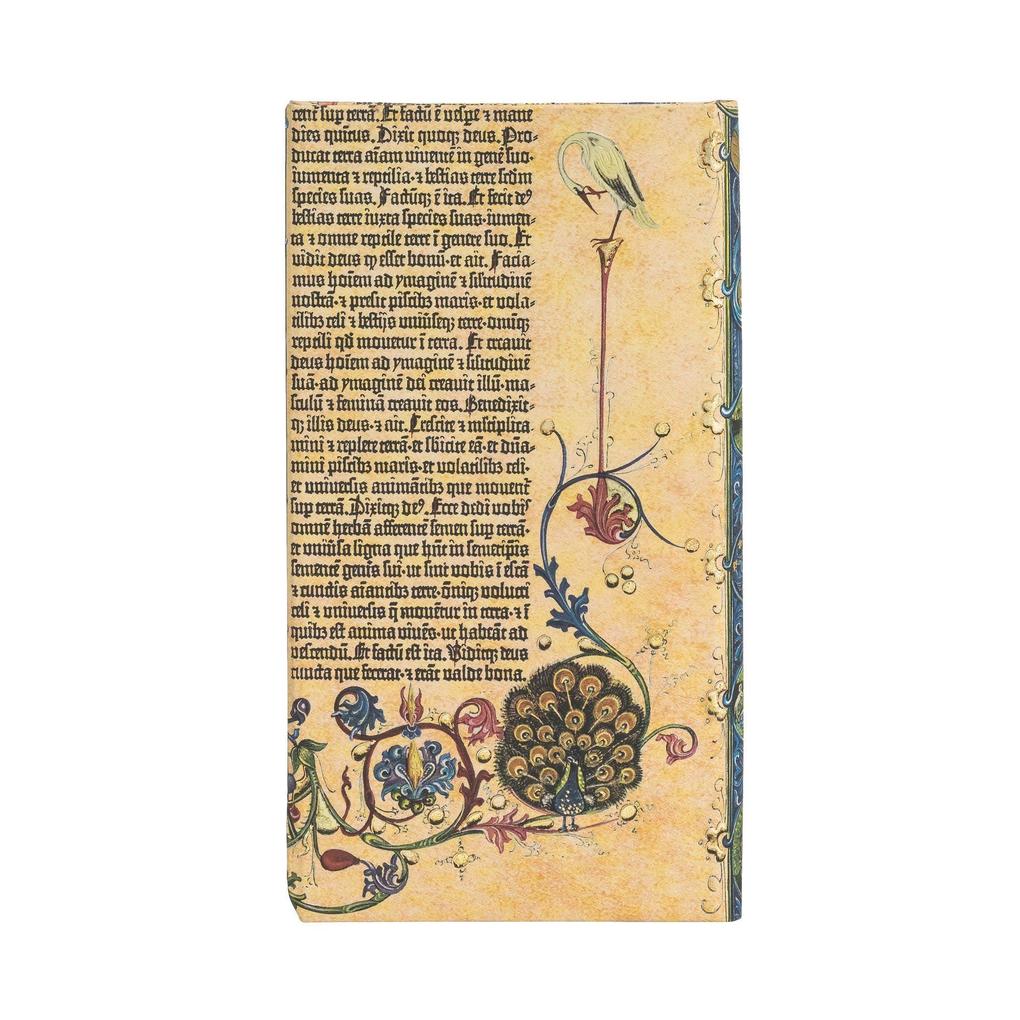 cent sup terrā. Et factū ē vespe ⁊ mane
dies quītus. Dixit quoqȝ deus. Pro-
ducat terra aīam viventē in genē suo·
iumenta ⁊ reptilia· ⁊ bestias terre scdm
species suas. Factūqȝ ē ita. Et fecit deꝰ
bestias terre iuxta species suas· iumen-
ta ⁊ omne reptile terre ī genere suo. Et
vidit deus ꝙ esset bonū· et ait. Facia-
mus hoīem ad ymaginē ⁊ silitudinē
nostrā· ⁊ presit piscibȝ maris· et vola-
tilibȝ celi ⁊ bestijs vniūseqȝ terre· omīqȝ
reptili qd̄ movetur ī terra. Et creauit
deus hoīem ad ymaginē ⁊ silitudinē
suā· ad ymaginē dei creauit illū· ma-
sculū ⁊ feminā creauit eos. Benedixit-
qȝ illis deus· ⁊ ait. Crescite ⁊ mltiplica-
mini ⁊ replete terrā· et sbicite eā· et dnā-
mini piscibȝ maris· et volatilibȝ celi·
et vniversis animātibȝ que movent̄
sup terrā. Dixitqȝ deꝰ. Ecce dedi vobis
omnē herbā afferentē semen sup terrā·
et vniūsa ligna que hn̄t in semetip̄is
sementē genīs sui· ut sint vobis ī escā
⁊ cunctis aīantibȝ terre· om̄iqȝ volucri
celi ⁊ vniversis q̄ mouētur in terra· ⁊ ī
quibȝ est anima vivēs· ut habeāt ad
vescendū. Et factū est ita. Viditqȝ deus
cuncta que fecerat· ⁊ erāt valde bona.